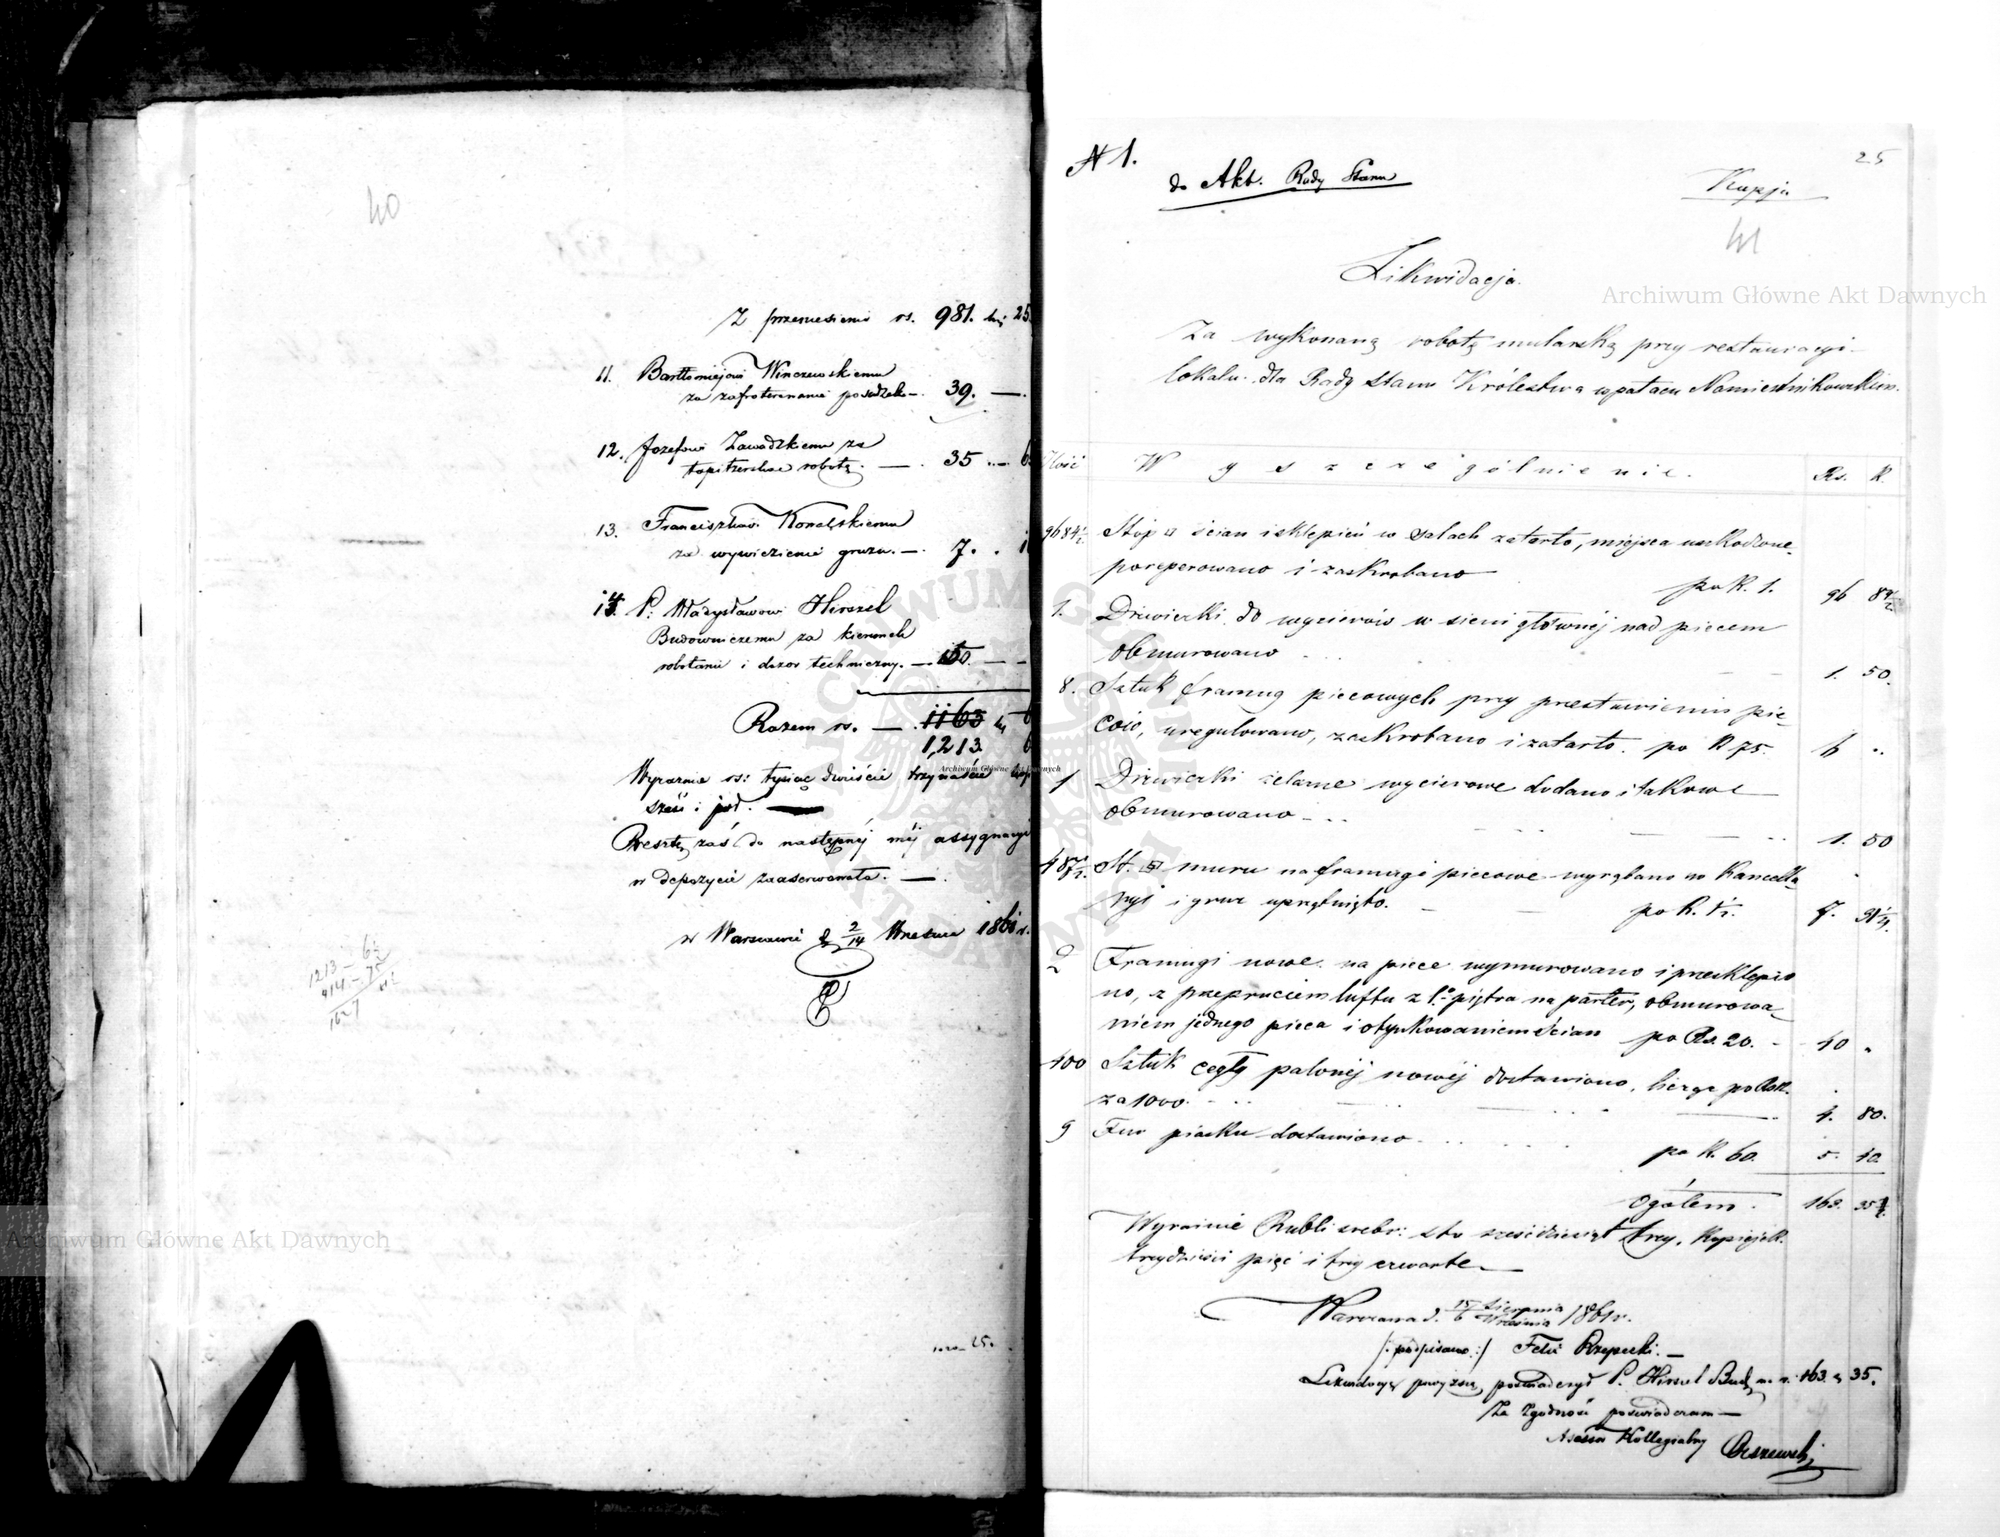 40
Z przeniesienia rs. 981. k. 25
11. Bartłomiejowi Winczewskiemu
za zafroterowanie posadzek — 39. —
12. Józefowi Zawadzkiemu za
tapicerskie robotę. — 35 . — 6
13. Franciszkowi Kowalskiemu
za wywiezienie gruzu. — 7. . 1
14. P. Władysławowi Hirszel
Budowniczemu za kierunek
robotami i dozór techniczny. — 150. —
Razem rs. — 1163 k. 6
1213. 6
Wyraźnie rs: tysiąc dwieście trzynaście kop
sześć i pół.
Resztę zaś do następnéj méj assygnacyi
w depozycie zaaserwować. —
w Warszawie d. 2/14 Września 1861 r.
1213 — 6½
414 — 75
N 1.
25
do Akt. Rady Stanu
Kopja
41
Likwidacja
Za wykonaną robotę mularską przy restauracyi
lokalu dla Rady Stanu Królestwa w pałacu Namiestnikowskim.
Ilość Wyszczególnienie. Rs. K.
9684½ Stóp □ ścian i sklepień w salach zatarto, miejsca uszkodzone
poreperowano i zaskrobano po k. 1. 96 84½
1. Drzwiczki do wycierów w sieni głównéj nad piecem
obmurowano 1. 50.
8. Sztuk framug piecowych przy przestawieniu pie-
ców, uregulowano, zaskrobano i zatarto. po K 75 6 "
1 Drzwiczki żelazne wycierowe dodano i takowe
obmurowano 1. 50
487½. St. □ muru na framugi piecowe wyrąbano w Kancella-
ryi i gruz uprzątnięto. po k. 1½. 7. 31¼.
2 Framugi nowe na piece wymurowano i przesklepio
no, z przepruciem luftu z 1.º piętra na parter, obmurowa-
niem jednego pieca i otynkowaniem ścian po Rs. 20. 40 "
400 Sztuk cegły palonéj nowéj dostawiono, licząc po Rs 12.
za 1000. 4. 80.
9 Fur piasku dostawiono po k. 60. 5. 40
Ogółem. 163. 35¾.
Wyraźnie Rubli srebr: sto sześćdziesiąt trzy, kopiejek
trzydzieści pięć i trzy czwarte. —
Warszawa d. Sierpnia / 6 Września 1861 r.
/: podpisano :/ Felix Rzepecki. —
Likwidacyą powyższą poświadczył P. Hirszel Bud. na r. 163. k 35.
Za zgodność poświadczam —
Asessor Kollegialny
Archiwum Główne Akt Dawnych
Archiwum Główne Akt Dawnych
Archiwum Główne Akt Dawnych
ARCHIWUM GŁÓWNE AKT DAWNYCH